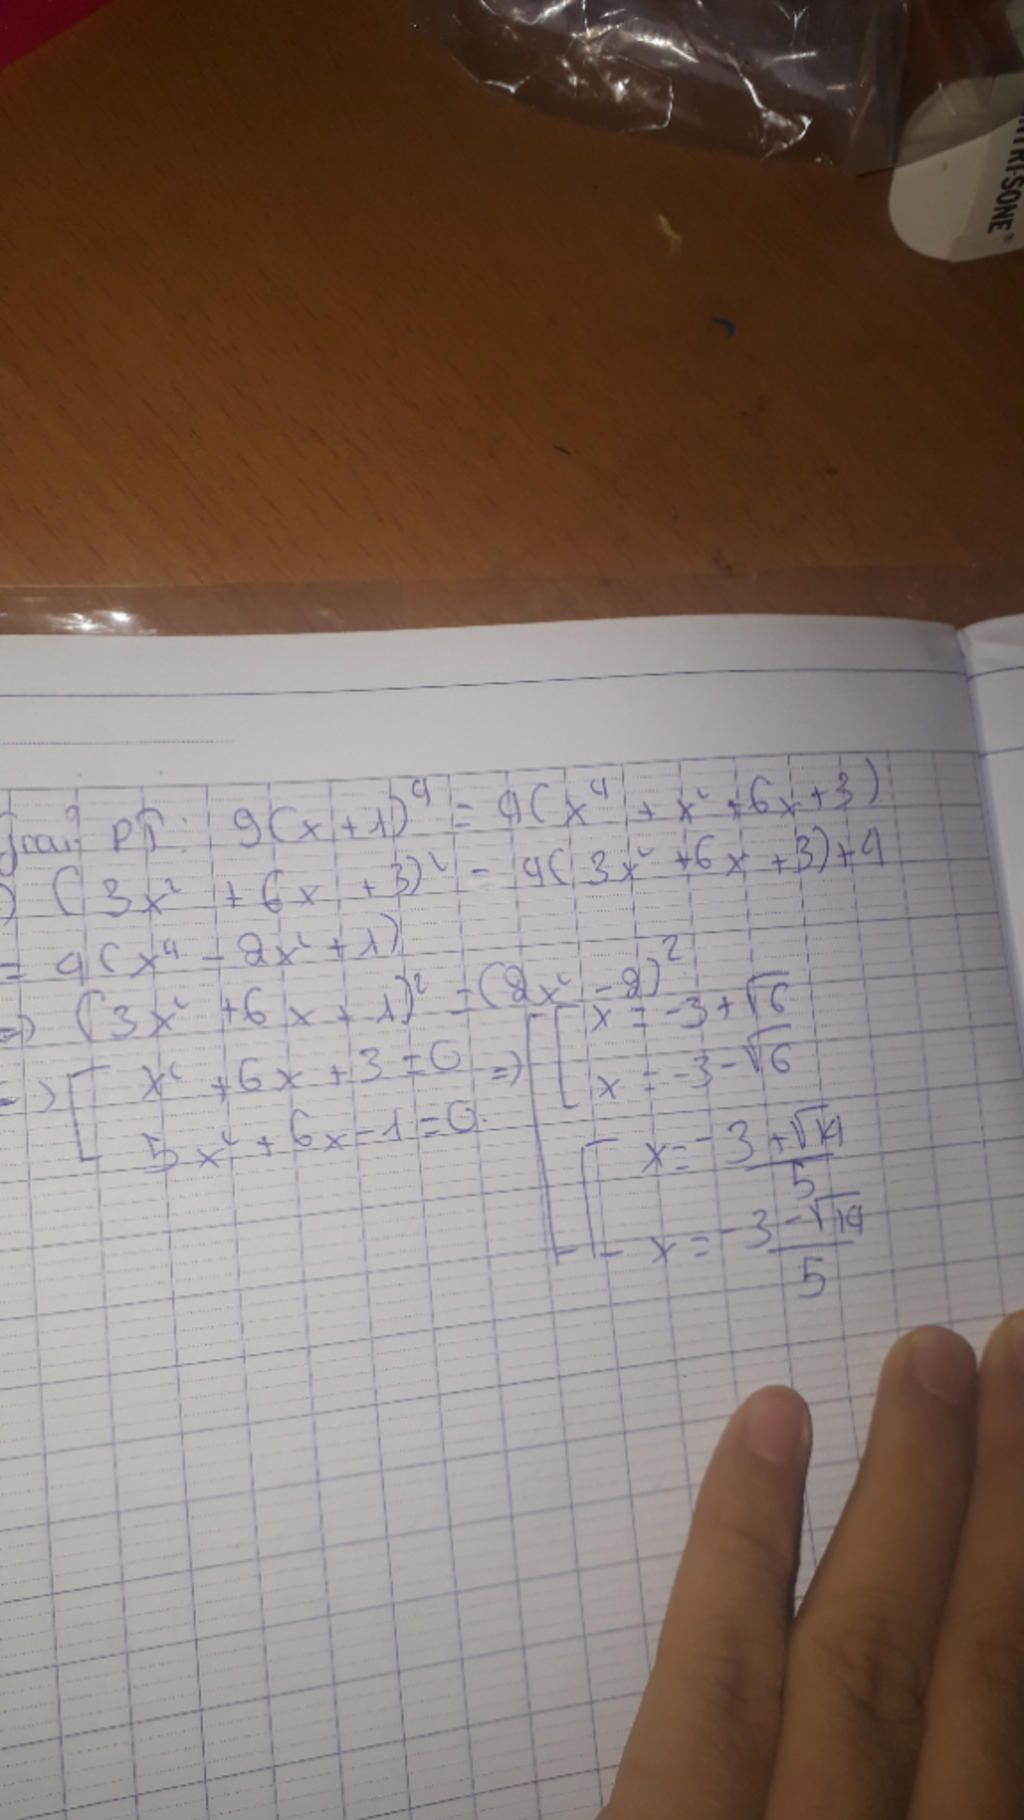 NTRI-SONE®
Giải PT: 9(x+1)⁴ = 4(x⁴ + x² + 6x + 3)
) (3x² + 6x + 3)² - 4(3x² + 6x + 3) + 4
= 4(x⁴ - 2x² + 1)
=) (3x² + 6x + 1)² = (2x² - 2)²
=) [ x² + 6x + 3 = 0 =) [ [ x = -3 + √6
5x² + 6x - 1 = 0. x = -3 - √6
[ x = (-3 + √14)/5
x = (-3 - √14)/5